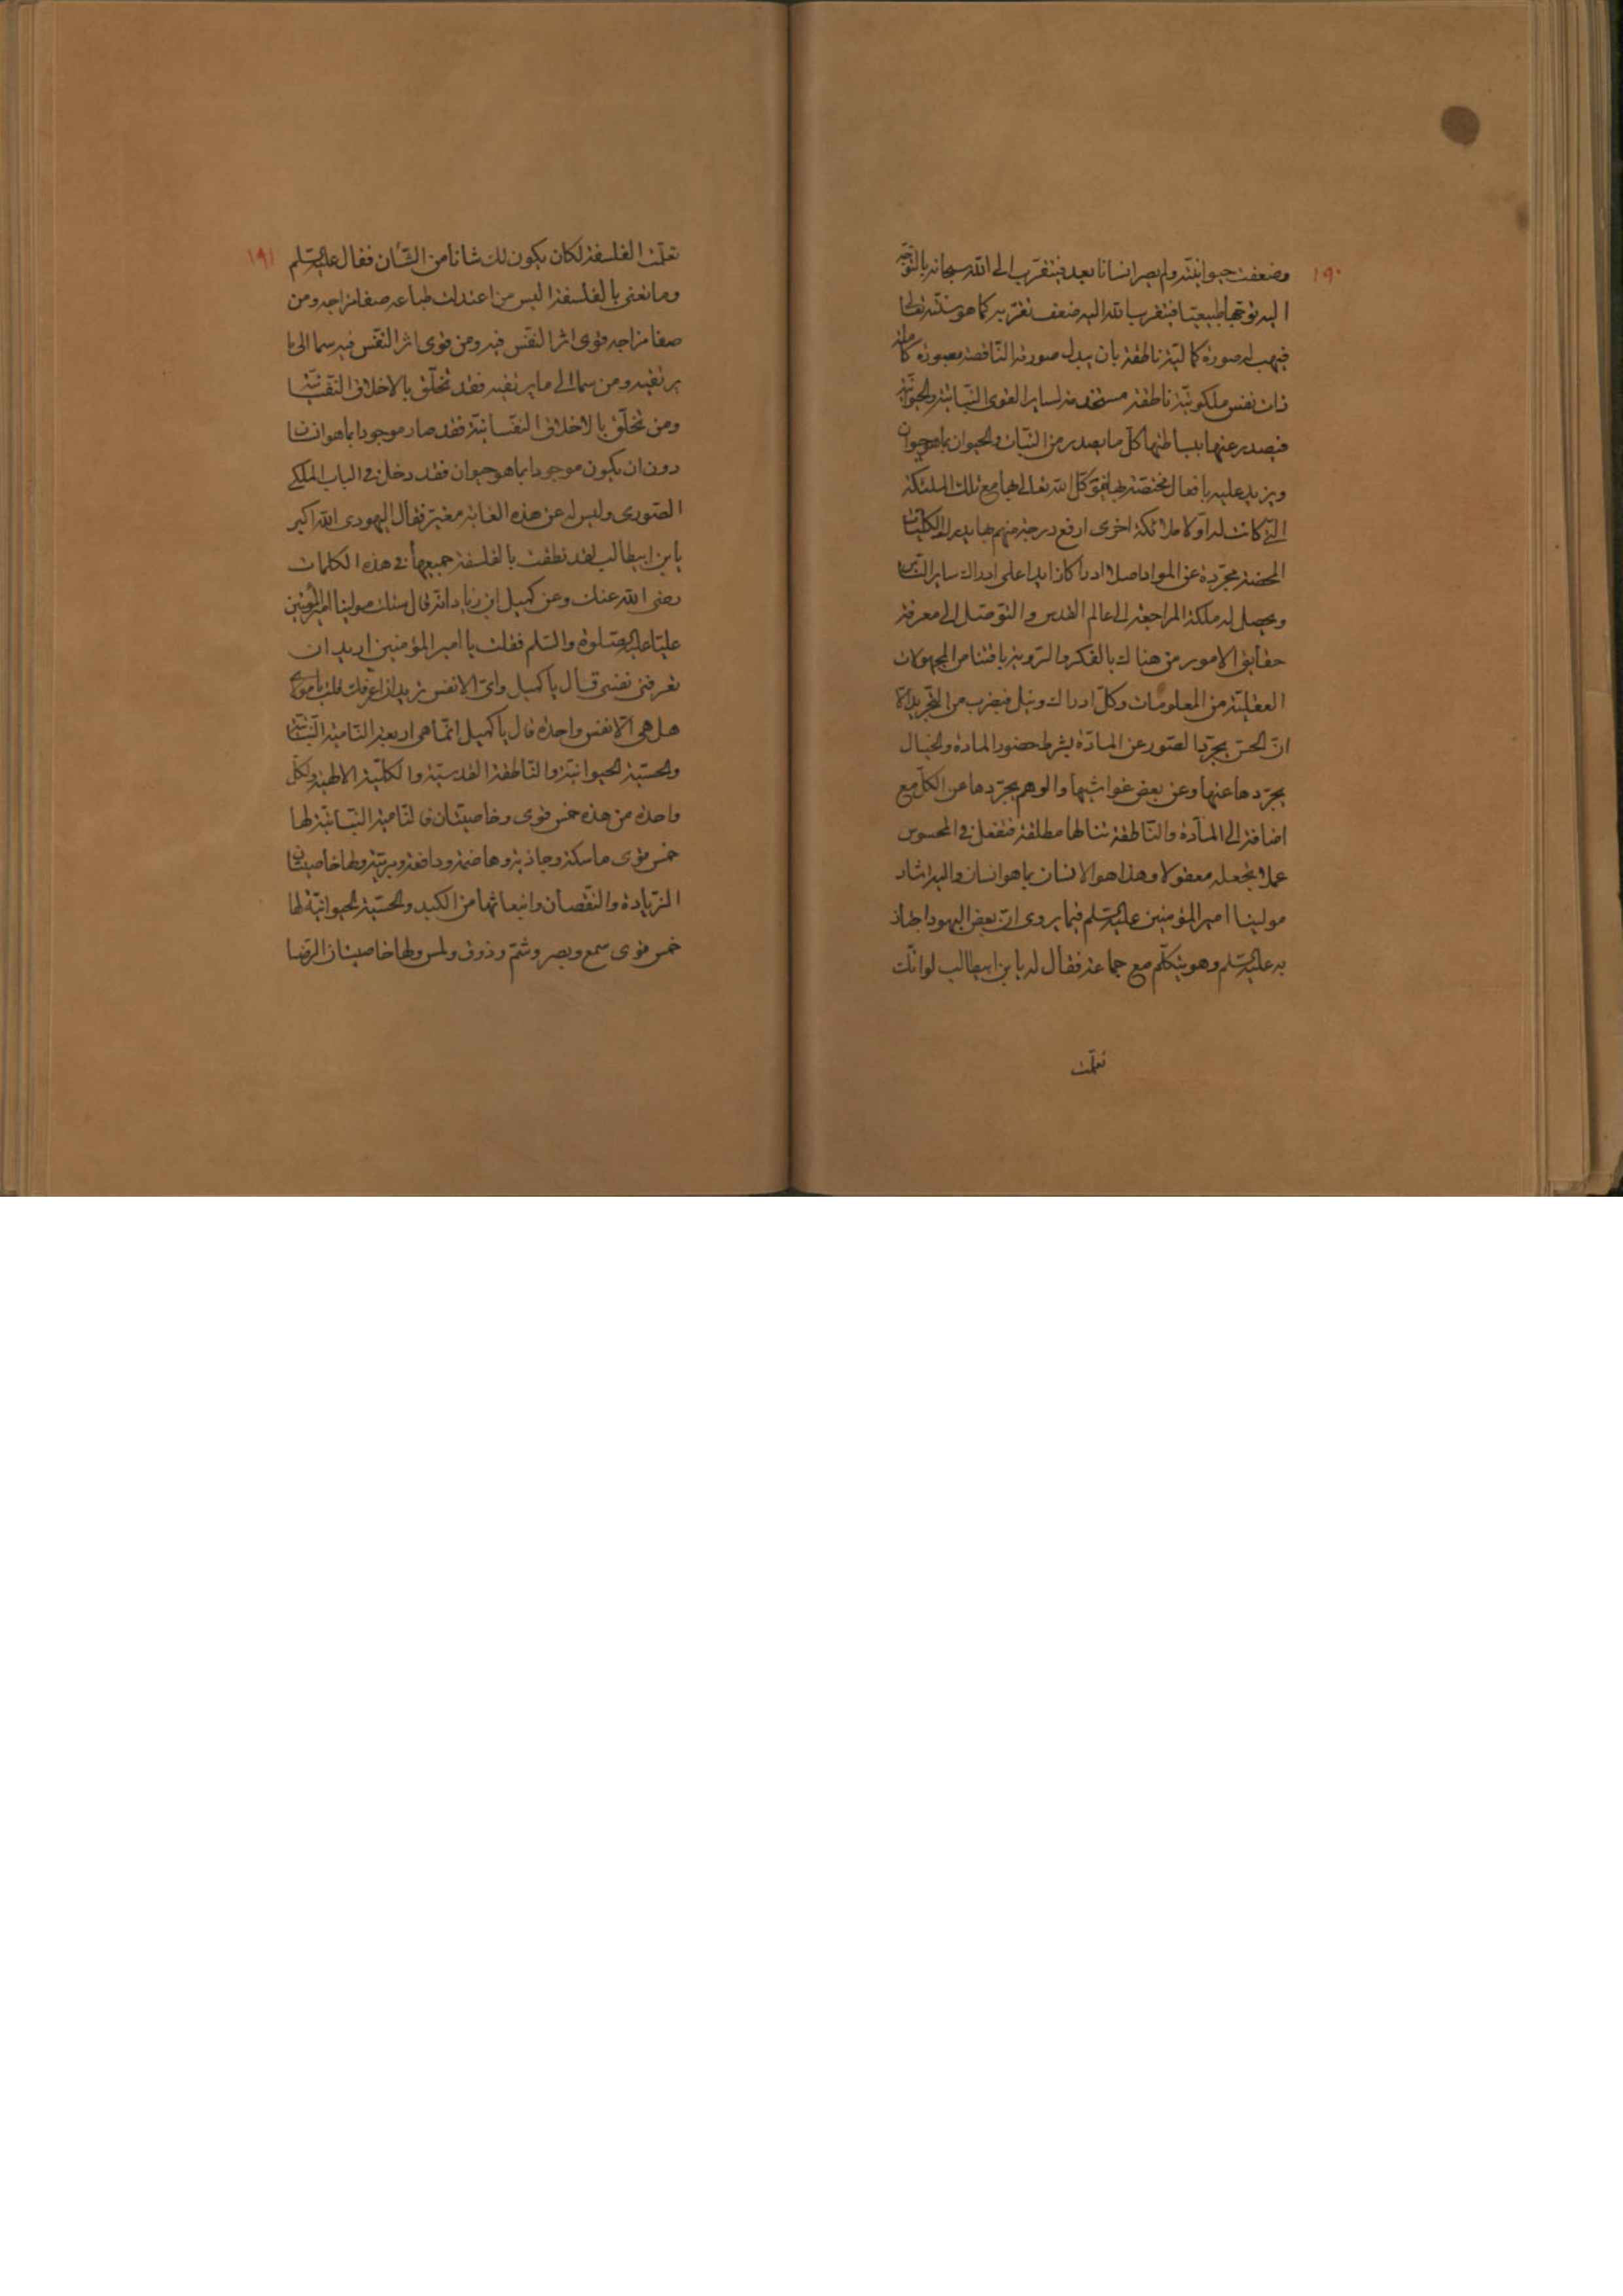 ١٩٠
وضعفت حيوانيته ولم يصر انسانا بعد فيتقرب الى الله سبحانه بالتوجه
اليه توجها طبيعيا فيتقرب الله اليه ضعف تقربه كما هو سنته تعالى
فيهب له صورة كمالية ناطقة بان يبدل صورته الناقصة بصورة كاملة
ذات نفس ملكوتية ناطقة مستخدمة لساير القوى النباتية والحيوانية
فيصدر عنها ببساطتها كل ما يصدر من النبات والحيوان بما هو حيوان
ويزيد عليه بافعال مختصة بها فوكل الله تعالى لها مع تلك الملئكة
التي كانت له اولا ملائكة اخرى ارفع درجة منهم بها يدرك الكليات
المحضة مجردة عن المواد اصلا ادراكا زايدا على ادراك ساير الناس
ويحصل له ملكة المراجعة الى عالم القدس والتوصل الى معرفة
حقايق الامور من هناك بالفكر والروية باقتناص المجهولات
العقلية من المعلومات وكل ادراك ونيل فبضرب من التجريد الا
ان الحس يجرد الصور عن المادة بشرط حضور المادة والخيال
يجردها عنها وعن بعض غواشيها والوهم يجردها عن الكل مع
اضافة الى المادة والناطقة تنالها مطلقة فتفعل في المحسوس
عملا يجعله معقولا وهذا هو الانسان بما هو انسان واليه اشار
مولينا امير المؤمنين عليه السلم فيما يروى ان بعض اليهود اجتاز
به عليه السلم وهو يتكلم مع جماعة فقال له يا بن ابيطالب لو انك
تعلمت
١٩١
تعلمت الفلسفة لكان يكون لك شانا من الشأن فقال عليه السلم
وما تعنى بالفلسفة اليس من اعتدلت طباعه صفا مزاجه ومن
صفا مزاجه قوى اثر النفس فيه ومن قوى اثر النفس فيه سما الى ما
يرتقيه ومن سما الى ما يرتقيه فقد تخلق بالاخلاق النفسانية
ومن تخلق بالاخلاق النفسانية فقد صار موجودا بما هو انسان
دون ان يكون موجودا بما هو حيوان فقد دخل في الباب الملكي
الصورى وليس له عن هذه الغاية مغير فقال اليهودى الله اكبر
يا بن ابيطالب لقد نطقت بالفلسفة جميعها في هذه الكلمات
رضى الله عنك وعن كميل ابن زياد انه قال سئلت مولينا امير المؤمنين
عليا عليه الصلوة والسلم فقلت يا امير المؤمنين اريد ان
تعرفنى نفسى قال يا كميل واى الانفس تريد ان اعرفك قلت يا مولاى
هل هى الا نفس واحدة قال يا كميل انما هى اربعة النامية النباتية
والحسية الحيوانية والناطقة القدسية والكلية الالهية ولكل
واحدة من هذه خمس قوى وخاصيتان فالنامية النباتية لها
خمس قوى ماسكة وجاذبة وهاضمة ودافعة ومربية ولها خاصيتان
الزيادة والنقصان وانبعاثها من الكبد والحسية الحيوانية لها
خمس قوى سمع وبصر وشم وذوق ولمس ولها خاصيتان الرضا